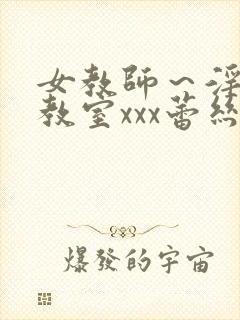 女教師～淫
教室xxx蕾絲
爆發的宇宙